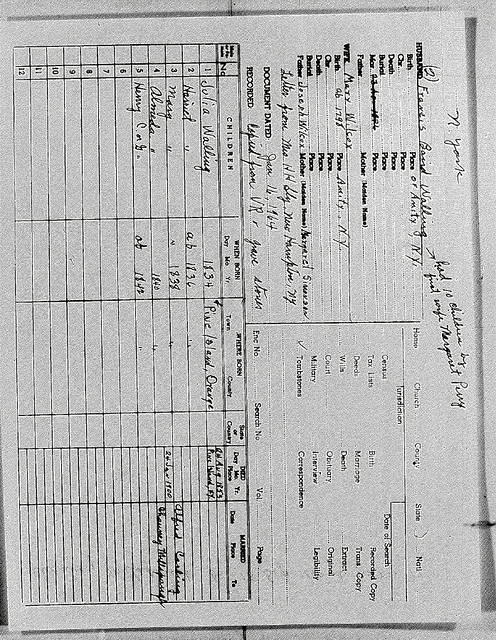 N York
(2)
HUSBAND Francis Baird Walling → had 10 children by
first wife Margaret Perry
Birth Place of Amity N.Y.
Chr Place
Death Place
Burial Place
Mar Place
Father Mother (Maiden Name)
WIFE Mary Wilcox
Birth ab 1798 Place Amity, N.Y.
Chr Place
Death Place
Burial Place
Father Joseph Wilcox Mother (Maiden Name) Margaret Simonson
Letter from Mrs HH Lly New Hampton, NY
DOCUMENT DATED Jan 16, 1964
RECORDED Copied from VR & grave stones
Home Church County State ) Natl
Jurisdiction
Date of Search
Census Birth Recorded Copy
Tax Lists Marriage Trans Copy
Deeds Death Extract
Wills Obituary Original
Court Interview Legibility
Military Correspondence
✓ Tombstones
Enc No. Search No. Vol Page
No. CHILDREN WHEN BORN Day Mo. Yr. WHERE BORN Town County State or Country DIED Day Mo. Yr. Place MARRIED Date Place To
1 Julia Walling 1834 Pine Island, Orange 24 Aug Pine Island, NY
2 Harriet " ab 1836
3 Mary " " 1838 Alfred
4 Almeda " 1840 Chauncey
5 Henry C. " ab 1842
6
7
8
9
10
11
12